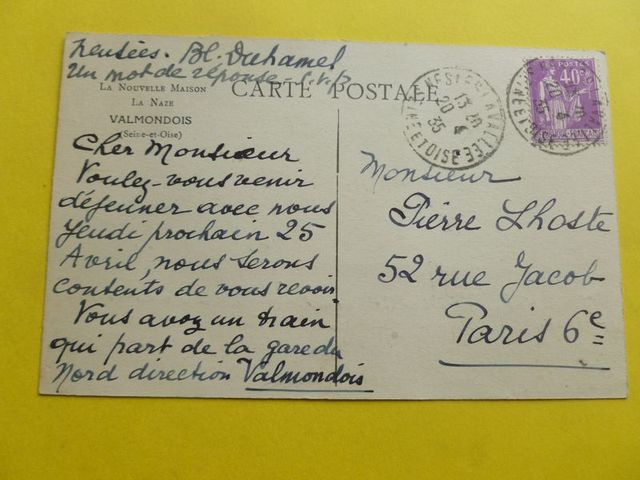 Pensées. Bl. Duhamel
Un mot de réponse - S.V.P.
La Nouvelle Maison
La Naze
VALMONDOIS
(Seine-et-Oise)
CARTE POSTALE
Cher Monsieur
Voulez-vous venir
déjeuner avec nous
Jeudi prochain 25
Avril, nous serons
contents de vous revoir
Vous avez un train
qui part de la gare du
Nord direction Valmondois
POSTES
40c
13 20
20 4
35
SEINE ET OISE
Monsieur
Pierre Lhoste
52 rue Jacob
Paris 6e